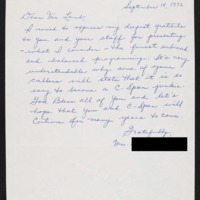 September 14, 1992
Dear Mr. Lamb,
I want to express my deepest gratitude
to you and your staff for presenting
what I consider - the finest unbiased
and balanced programming. It's very
understandable why some of your
callers will state that it is so
easy to become a C-Span junkie
God Bless all of you and let's
hope that you and C-Span will
continue for many years to come.
Gratefully,
Mrs.